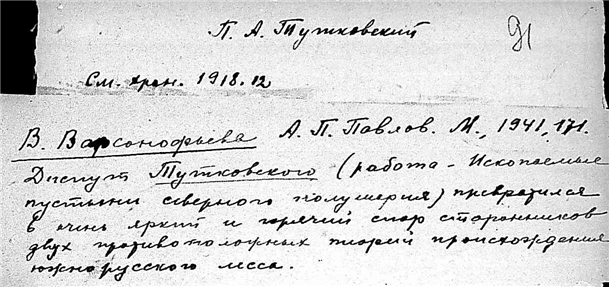 П. А. Тутковский
91
См. хрон. 1918.12
В. Варсонофьева А. П. Павлов. М., 1941, 171.
Диспут Тутковского (работа - Ископаемые
пустыни северного полушария) превратился
в очень яркий и горячий спор сторонников
двух противоположных теорий происхождения
южнорусского лесса.